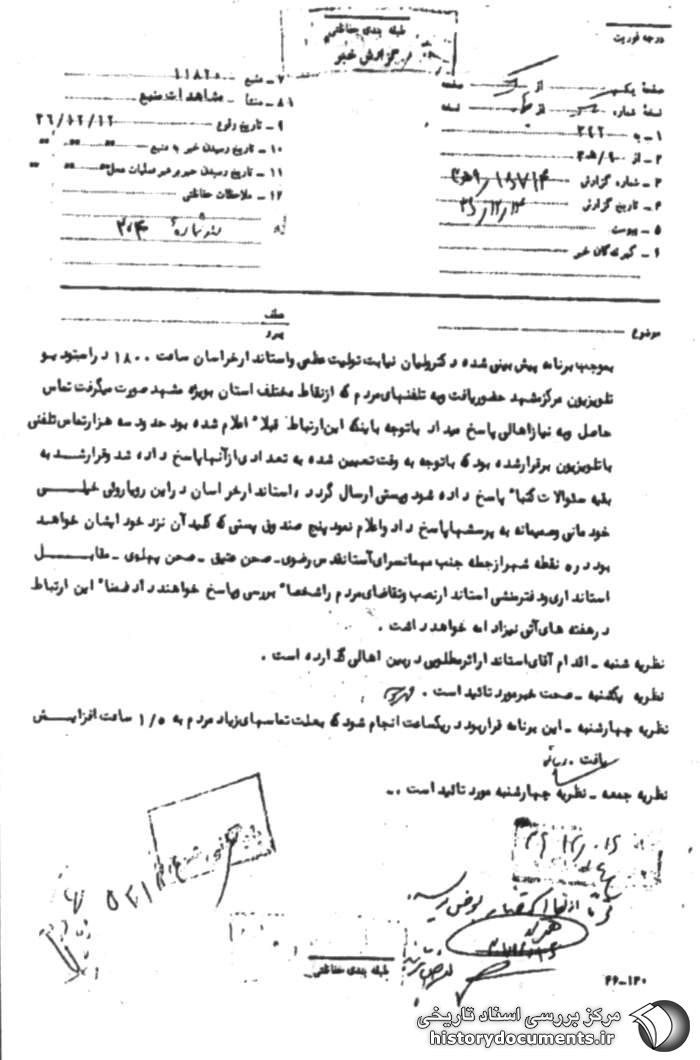 طبقه بندی حفاظتی
گزارش خبر
درجه فوریت
صفحه یک از صفحه
نسخه شماره از نسخه
۱ - به ۳۴۲
۲ - از ۹/ه۲
۳ - شماره گزارش ۱۸۷۱۴/ه۹
۴ - تاریخ گزارش ۳۶/۱۲/۱۴
۵ - پیوست
۶ - گیرندگان خبر
۷ - منبع ۱۱۸۲۰
۸ - منشأ مشاهدات منبع
۹ - تاریخ وقوع ۳۶/۱۲/۱۲
۱۰ - تاریخ رسیدن خبر به منبع " " "
۱۱ - تاریخ رسیدن خبر به رهبر عملیات محل " " "
۱۲ - ملاحظات حفاظتی
شماره ۲۰۴
موضوع
عطف
پیرو
بموجب برنامه پیش بینی شده دکترولیان نیابت تولیت عظمی و استاندار خراسان ساعت ۱۸۰۰ در استودیو
تلویزیون مرکز مشهد حضور یافت و به تلفنهای مردم که از نقاط مختلف استان بویژه مشهد صورت میگرفت تماس
حاصل و به نیاز اهالی پاسخ میداد باتوجه باینکه این ارتباط قبلا" اعلام شده بود حدود سه هزار تماس تلفنی
با تلویزیون برقرار شده بود که باتوجه به وقت تعیین شده به تعدادی از آنها پاسخ داده شد و قرار شد به
بقیه سئوالات کتبا" پاسخ داده شود و پستی ارسال گردد، استاندار خراسان در این رویاروئی خیلی
خودمانی و صمیمانه به پرسشها پاسخ داد و اعلام نمود پنج صندوق پستی که کلید آن نزد خود ایشان خواهد
بود در ۵ نقطه شهر از جمله جنب میهمانسرای آستانقدس رضوی - صحن عتیق - صحن پهلوی - مقابل
استانداری و دفتر منشی استاندار نصب و تقاضای مردم را شخصا" بررسی و پاسخ خواهند داد ضمنا" این ارتباط
در هفته های آتی نیز ادامه خواهد داشت .
نظریه شنبه - اقدام آقای استاندار اثر مطلوبی در بین اهالی گذارده است .
نظریه یکشنبه - صحت خبر مورد تائید است .
نظریه چهارشنبه - این برنامه قرار بود در یکساعت انجام شود که بعلت تماسهای زیاد مردم به ۱/۵ ساعت افزایش
یافت .
نظریه جمعه - نظریه چهارشنبه مورد تائید است .-
طبقه بندی حفاظتی
۴۶-۱۲۰
مرکز بررسی اسناد تاریخی
historydocuments.ir